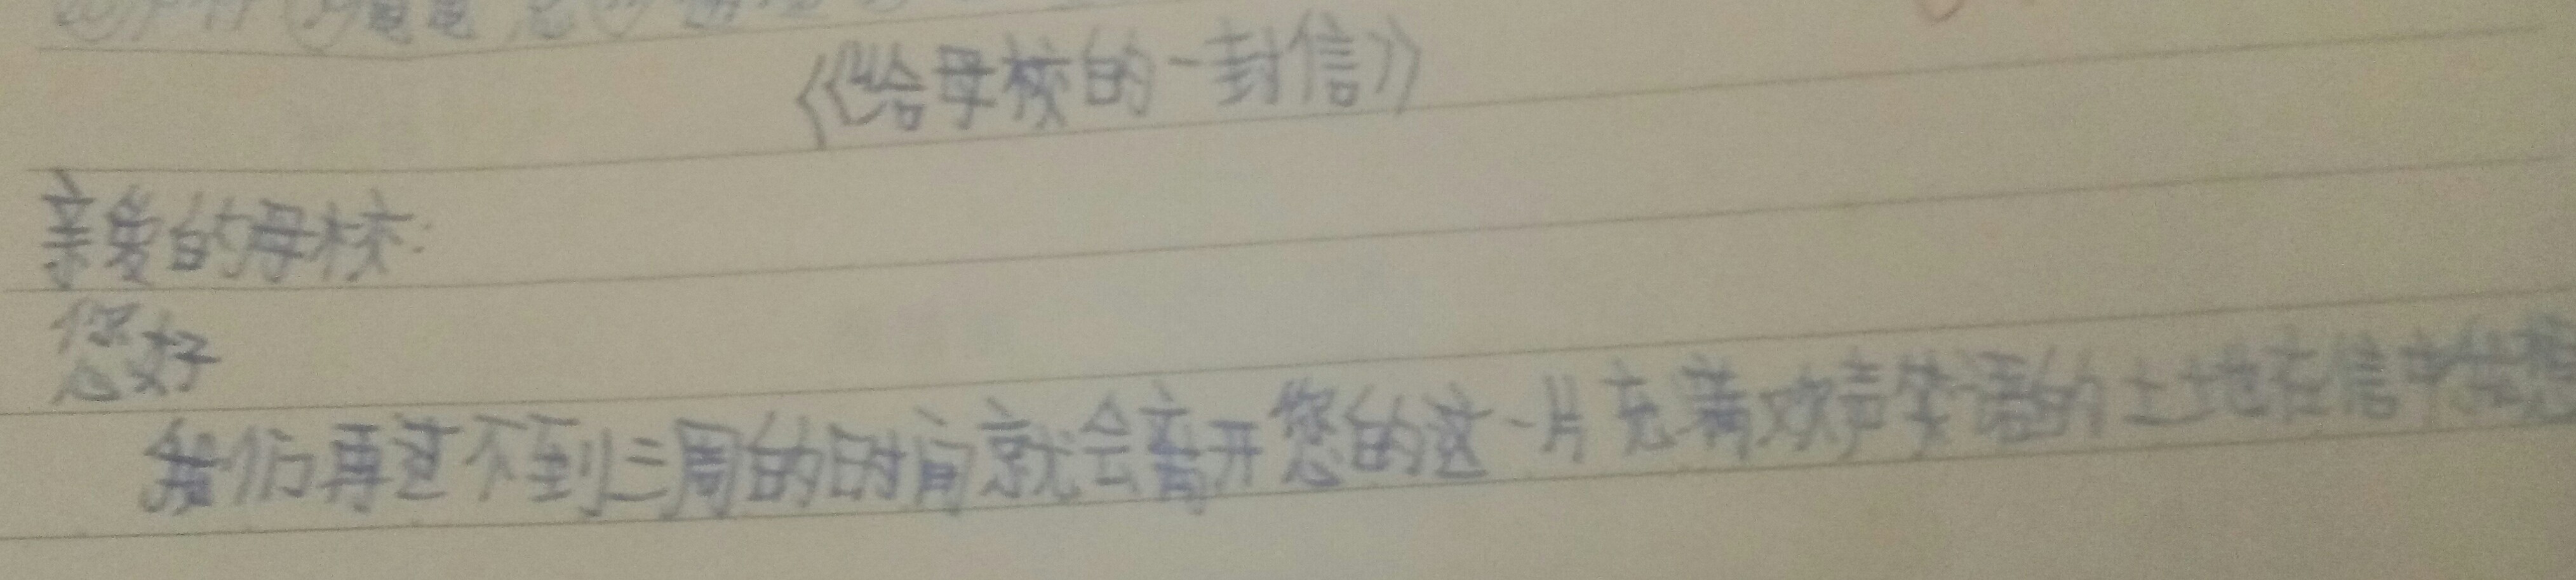 《给母校的一封信》
亲爱的母校:
您好
我们再过不到三周的时间就会离开您的这一片充满欢声笑语的土地在信中